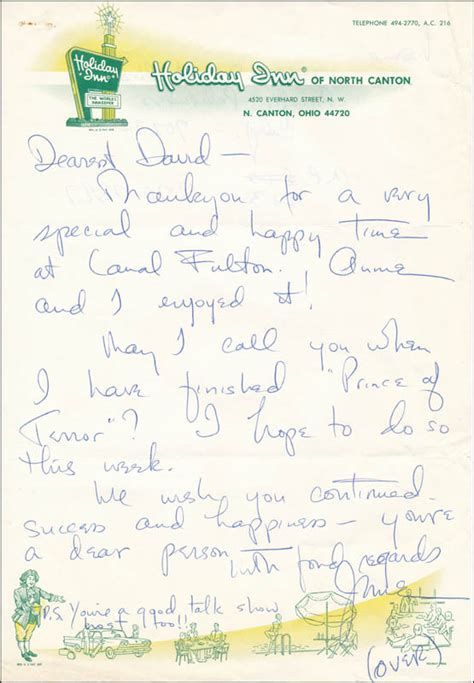 TELEPHONE 494-2770, A.C. 216
Holiday Inn
THE WORLD'S INNKEEPER
Holiday Inn® OF NORTH CANTON
4520 EVERHARD STREET, N. W.
N. CANTON, OHIO 44720
Dearest David —
Thankyou for a very
special and happy time
at Canal Fulton. Anne
and I enjoyed it!
May I call you when
I have finished "Prince of
Terror"? I hope to do so
this week.
We wish you continued
success and happiness — you're
a dear person
with fond regards
P.S. You're a good talk show
host too!!
(over)